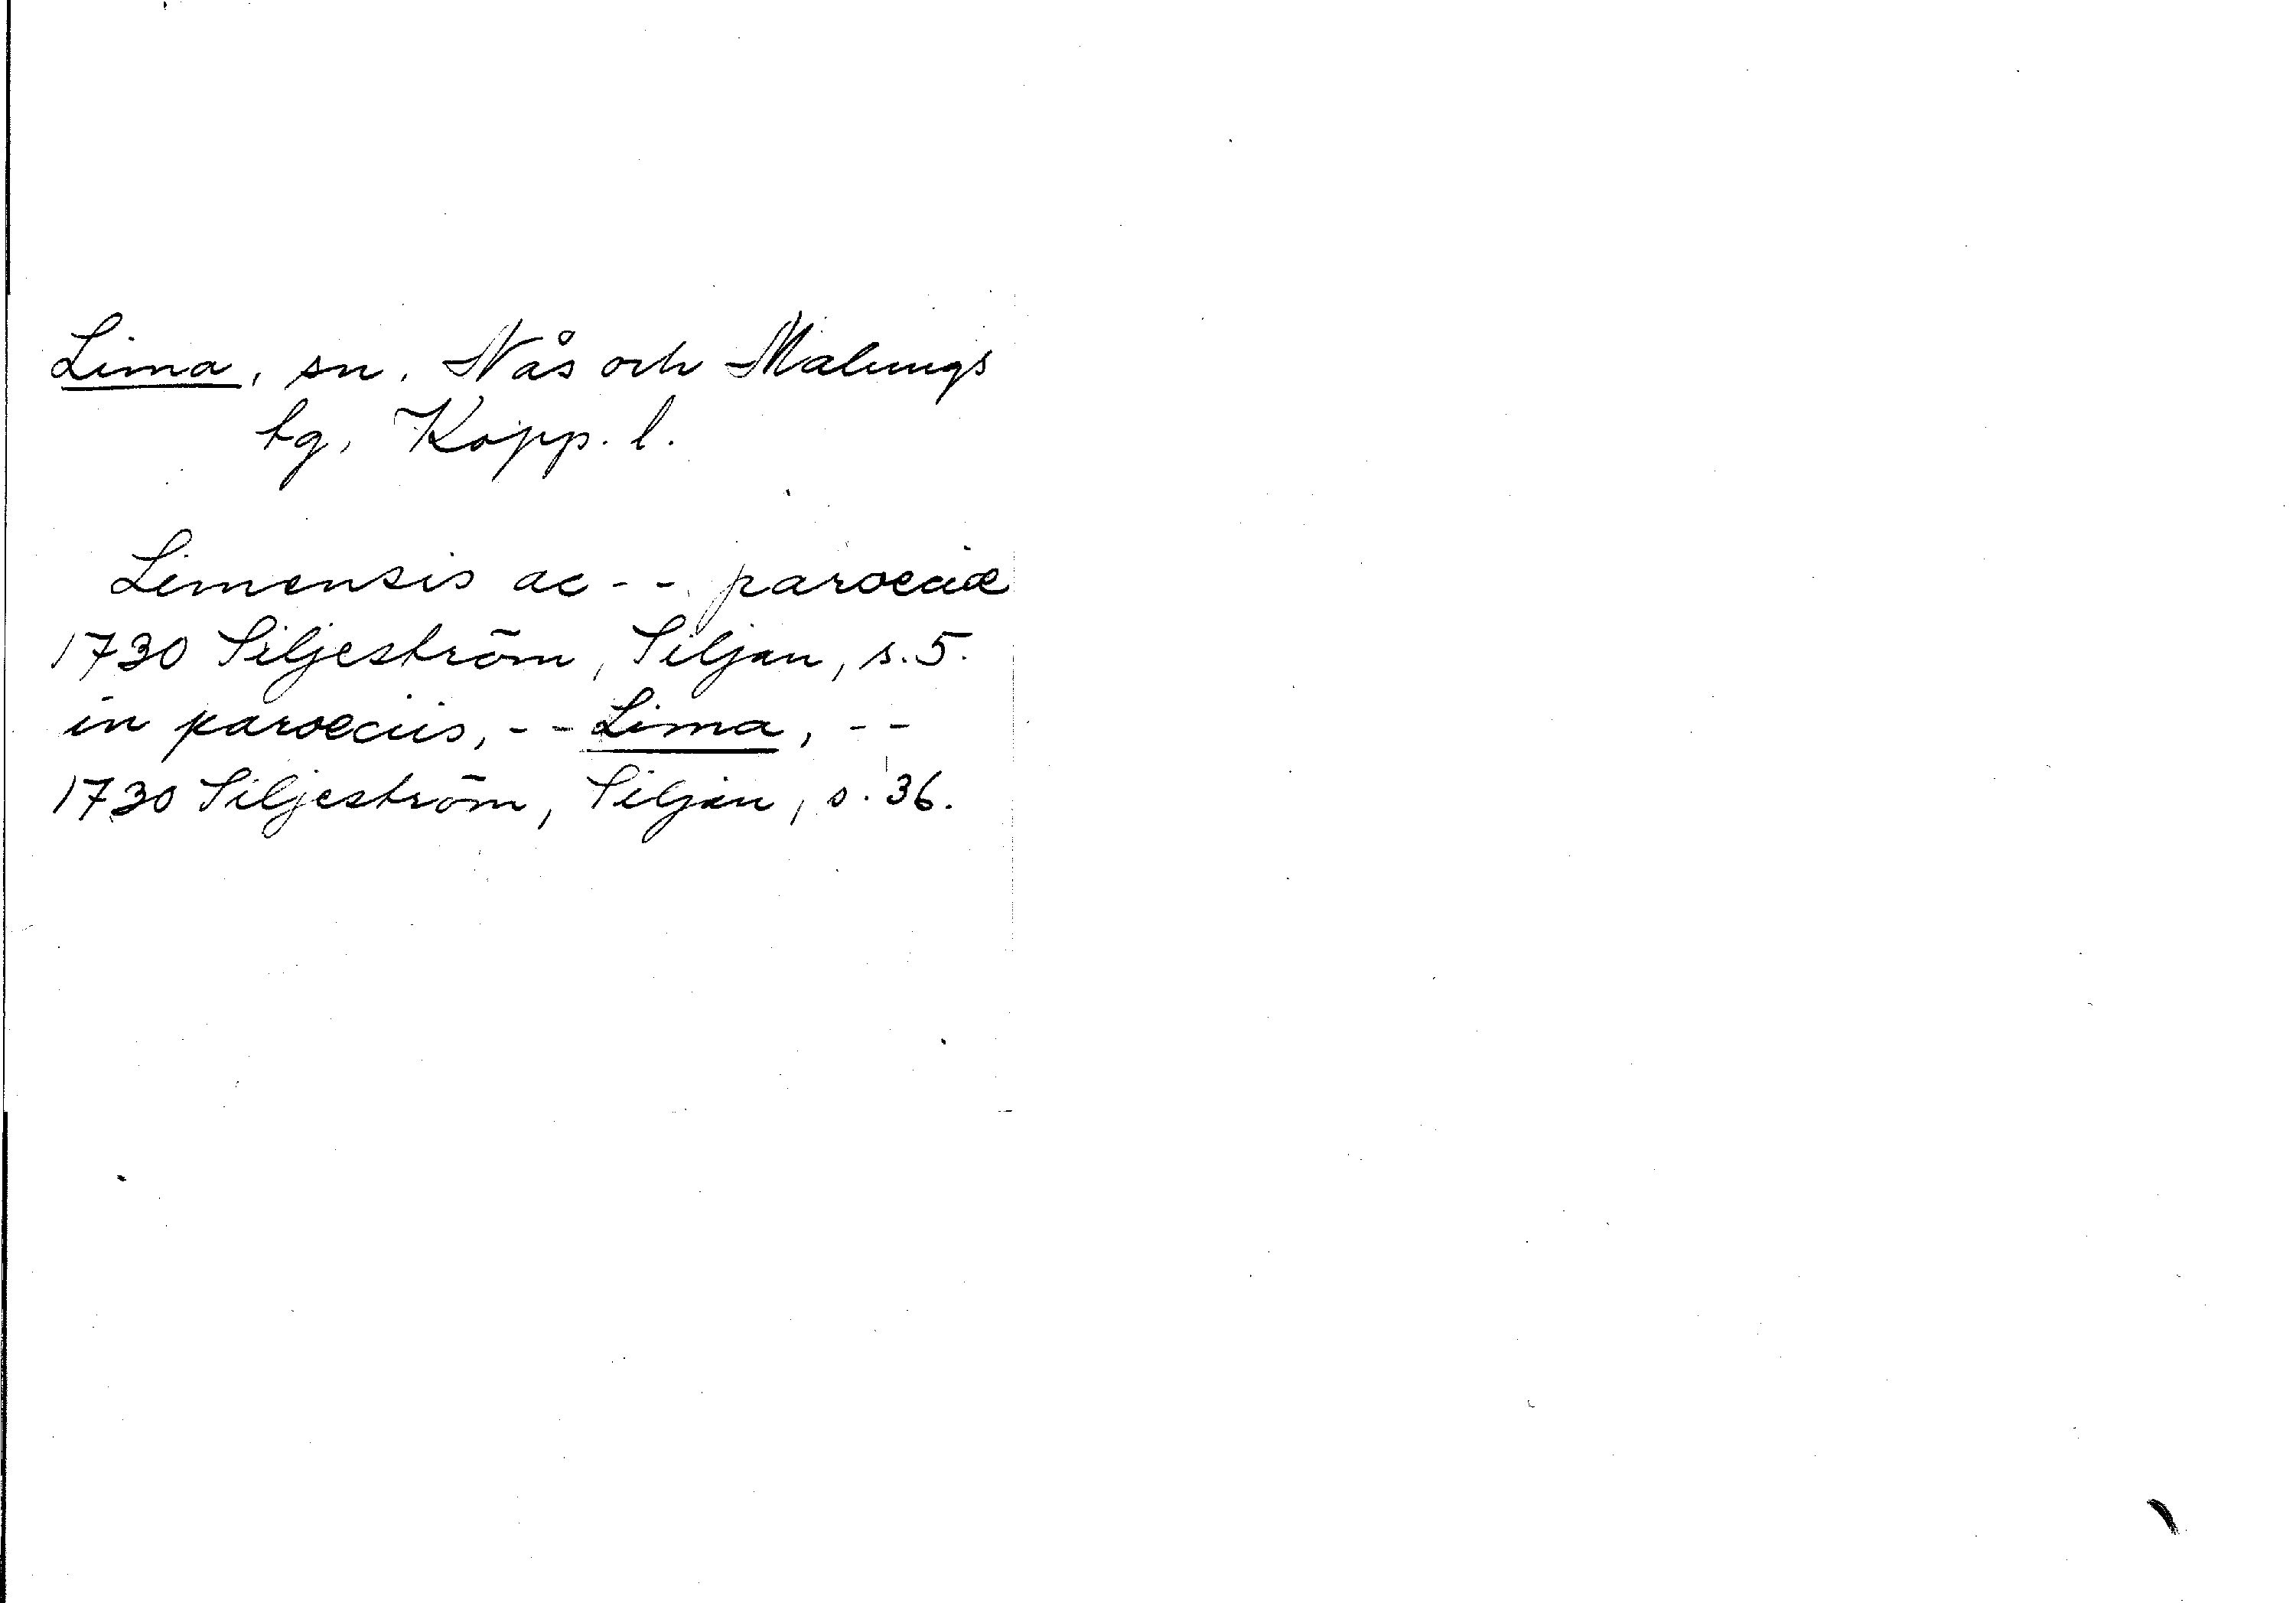 Lima, sn, Nås och Malungs
tg, Kopp. l.
Limensis ac -- paroeciæ
1730 Siljeström, Siljan, s. 5.
in paroeciis, -- Lima, --
1730 Siljeström, Siljan, s. 36.